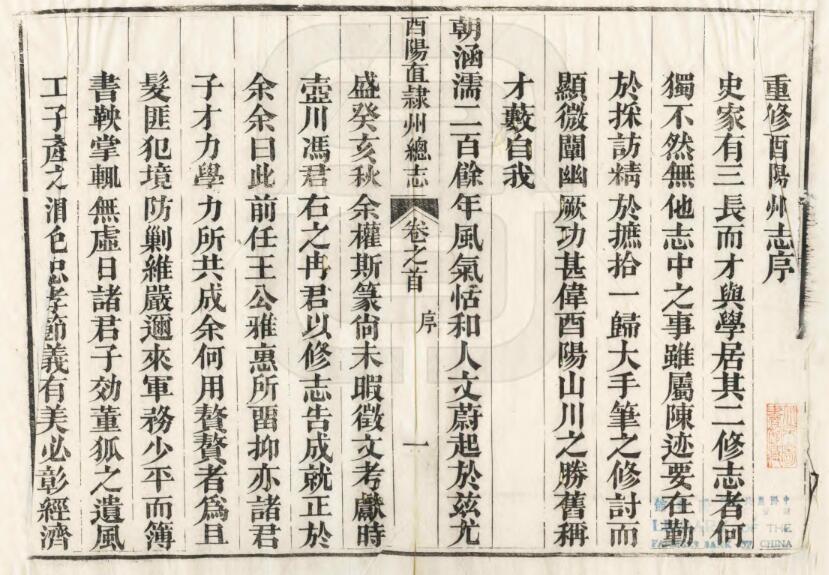 重修酉陽州志序
史家有三長而才與學居其二修志者何
獨不然無他志中之事雖屬陳迹要在勤
於採訪精於摭拾一歸大手筆之修討而
顯微闡幽厥功甚偉酉陽山川之勝舊稱
才藪自我
朝涵濡二百餘年風氣恬和人文蔚起於玆尤
酉陽直隸州總志 卷之首 序 一
盛癸亥秋余權斯篆尙未暇徵文考獻時
壺川馮君右之冉君以修志告成就正於
余余曰此前任王公雅惠所畱抑亦諸君
子才力學力所共成余何用贅贅者爲且
髮匪犯境防剿維嚴邇來軍務少平而簿
書鞅掌輒無虛日諸君子効董狐之遺風
工子產之潤色忠孝節義有美必彰經濟
LIBRARY OF THE
CHINA